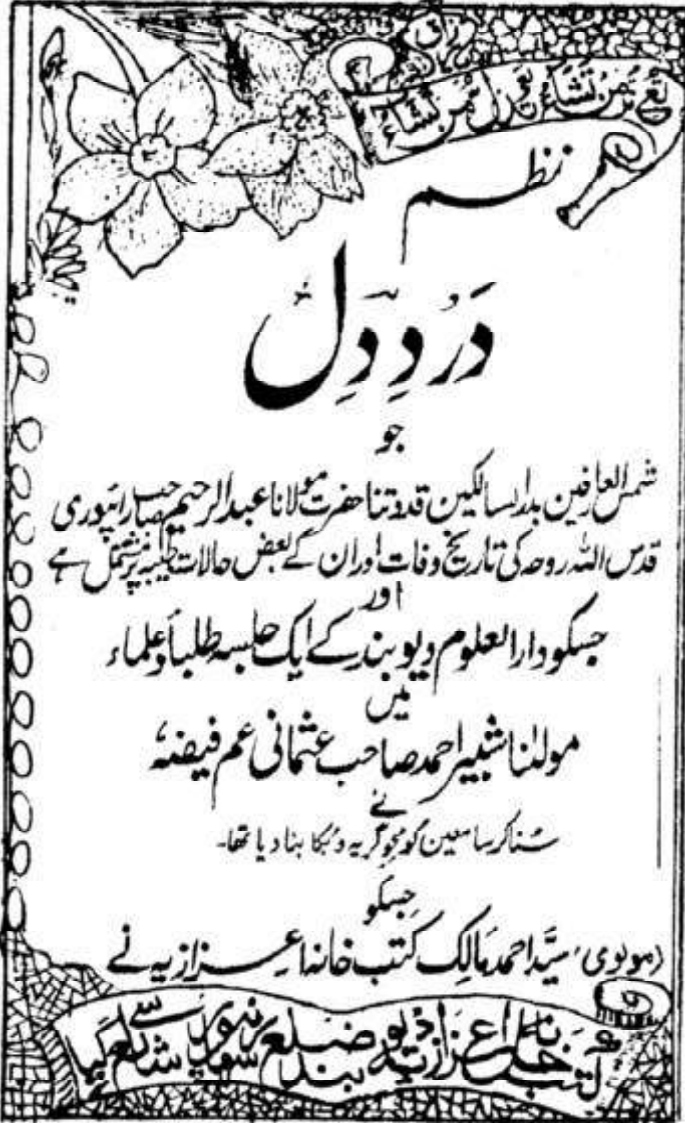 تعز من تشاء و تذل من تشاء
نظم
دَردِ دِل
جو
شمس العارفین بدر السالکین قدوتنا حضرت مولانا عبدالرحیم صاحب رائپوری
قدس اللہ روحہ کی تاریخ وفات اور ان کے بعض حالات طیبہ پر مشتمل ہے
اور
جسکو دارالعلوم دیوبند کے ایک جلسہ طلباء و علماء
میں
مولٰنا شبیر احمد صاحب عثمانی عم فیضہٗ
نے
سُنا کر سامعین کو محوِ گریہ و بُکا بنا دیا تھا۔
جسکو
(مولوی) سیّد احمد مالک کتب خانہ اعزازیہ نے
کتب خانہ اعزازیہ دیوبند ضلع سہارنپور سے شائع کیا